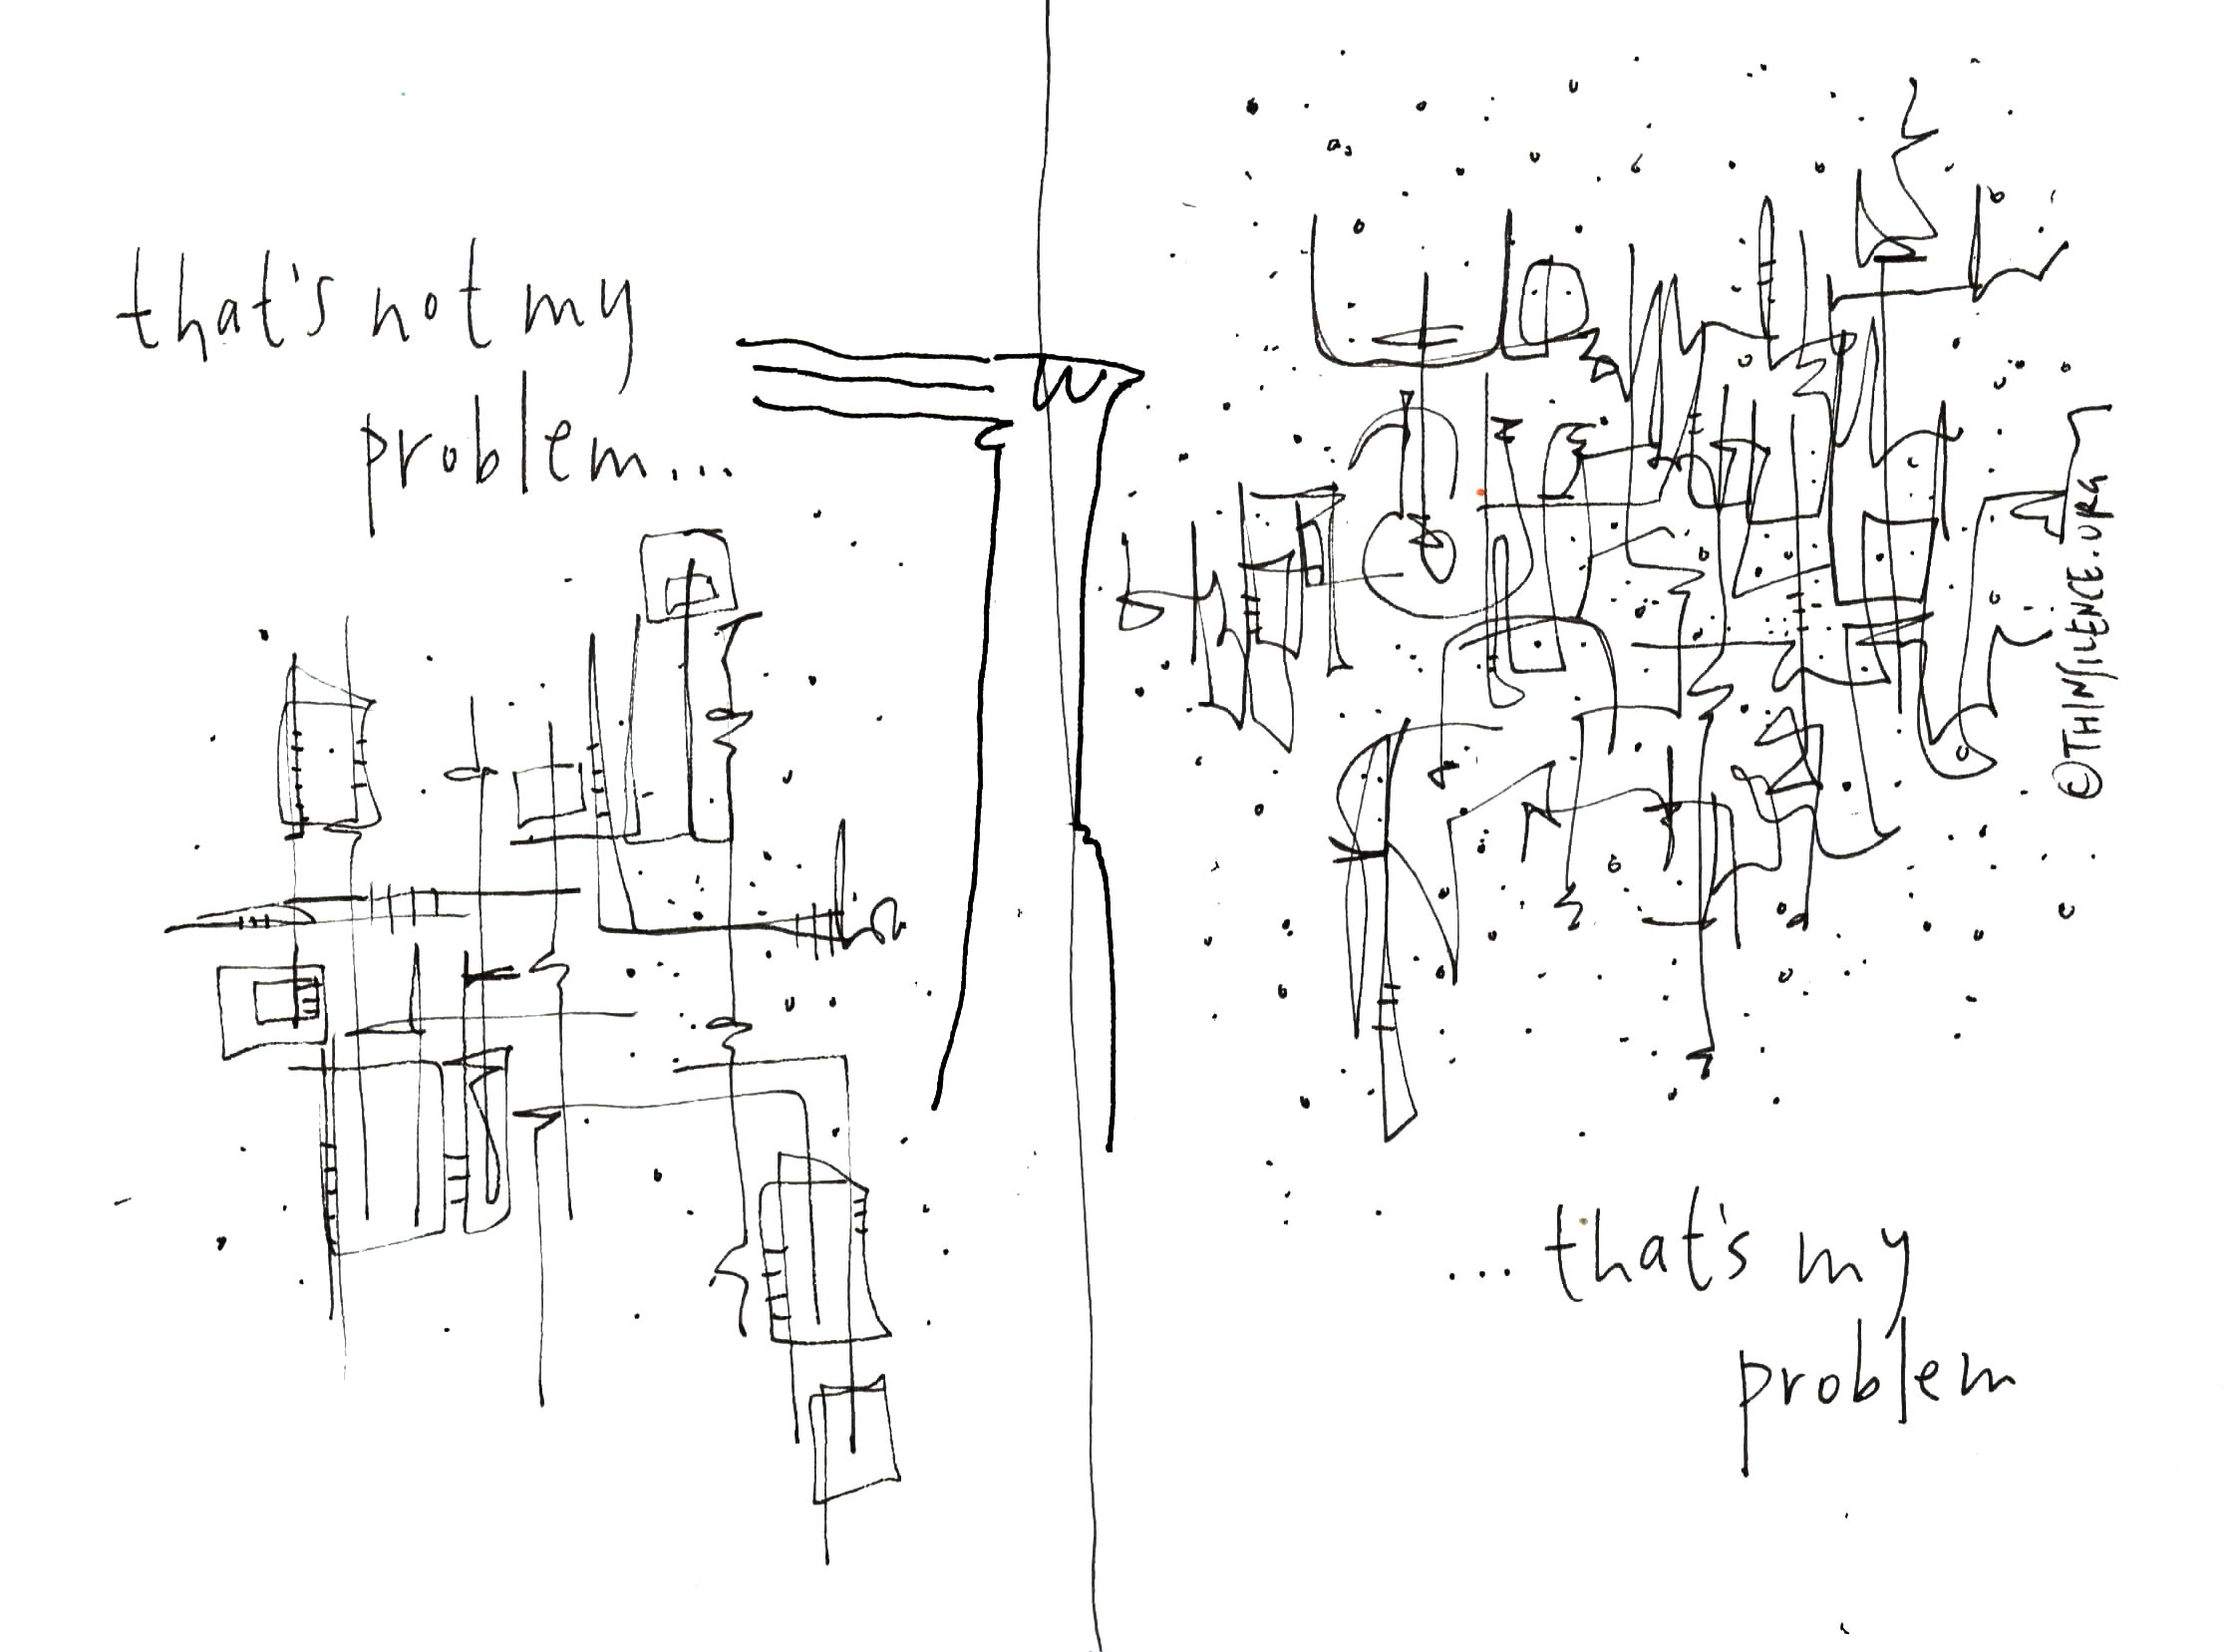 that's not my
problem...
...that's my
problem
©THINSILENCE.ORG